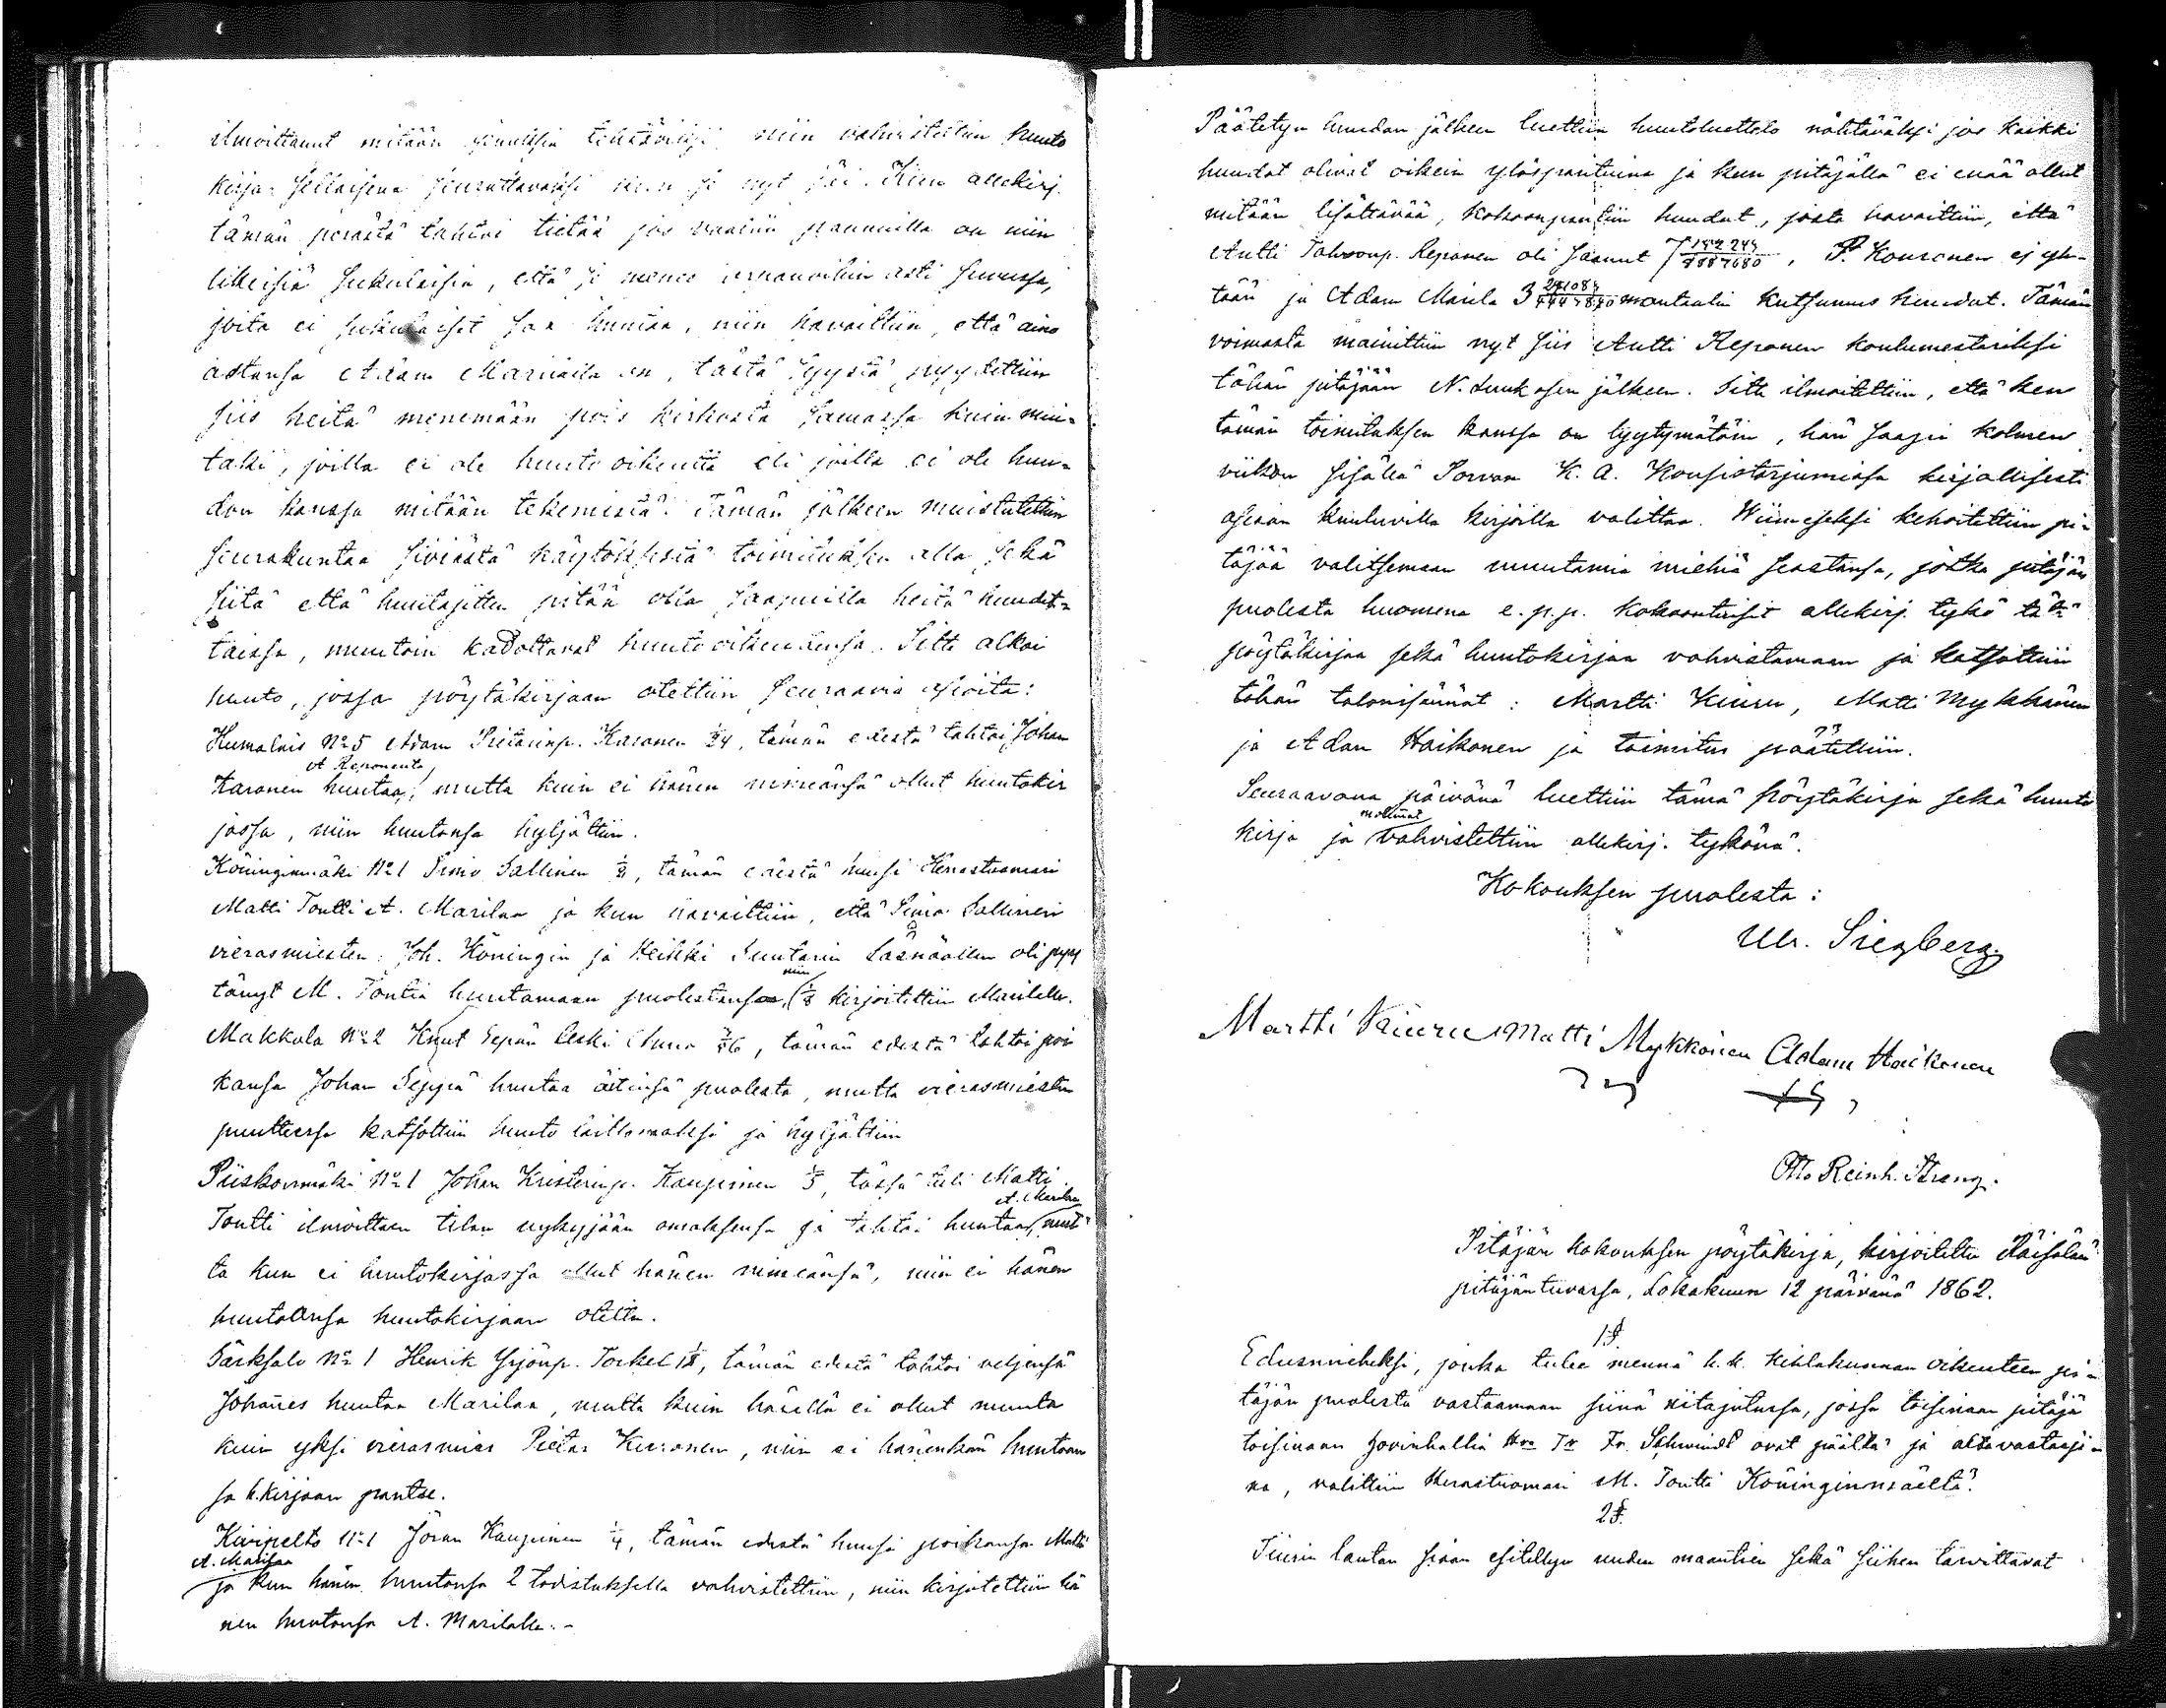 ilmoittanut mitään muuksia tehtäväksi niin vahvistettiin huuto
kirja sellaisena seurattavaksi kuin se nyt jäi. Kun allekirj.
tämän perästä tahtoi tietää jos vaaliin pannuilla on niin
likeisiä sukulaisia, että se menee serkunoihin asti suvussa,
joita ei sukulaiset saa huutaa, niin havaittiin, että aino
astansa Adam Marilalla on, tästä syystä pyydettiin
siis heitä menemään pois kirkosta samassa kuin mui-
takin, joilla ei ole huuto oikeutta eli joilla ei ole huu-
don kanssa mitään tekemistä. Tämän jälkeen muistutettiin
seurakuntaa siviästä käytöksestä toimituksen alla sekä
siitä että huutajitten pitää olla saapuvilla heitä huudet-
taissa, muutoin kadottavat huuto oikeutensa. Sitte alkoi
huuto, jossa pöytäkirjaan otettiin seuraavia asioita:
Humalais No 5 Adam Pietarinp. Karonen 1/24, tämän edestä tahtoi Johan
A Reposenta
Karonen huutaa, mutta kuin ei hänen nimeänsä ollut huutokir
jassa, niin huutonsa hyljättiin.
Köninginmäki No 1 Simo Sallinen 1/8, tämän edestä huusi Herrastuomari
Matti Toutti A. Marilaa ja kun havaittiin, että Simo Sallinen
vierasmiesten: Joh. Köningin ja Heikki Suutarin läsnäollen oli pyy
niin
tänyt M. Toutia huutamaan puolestansa, 1/8 kirjoitettiin Marilalle.
Makkola No 2 Knut Sepän leski Anna 1/36, tämän edestä tahtoi poi
kansa Johan Seppä huutaa äitinsä puolesta, mutta vierasmiesten
puutteessa katsottiin huuto laittomaksi ja hyljättiin
Piiskonmäki No 1 Johan Kristerinp. Kaupinen 1/3, tässä tuli Matti
A. Marilaa
Toutti ilmoittaen tilan nykyjään omaksensa ja tahtoi huutaa, mut
ta kun ei huutokirjassa ollut hänen nimeänsä, niin ei hänen
huutoansa huutokirjaan otettu.
Särksalo No 1 Henrik Yrjönp. Torkel 1/8, tämän edestä tahtoi veljensä
Johannes huutaa Marilaa, mutta kuin hänellä ei ollut muuta
kuin yksi vierasmies Pietar Kuronen, niin ei hänenkään huutoan
sa h.kirjaan pantu.
Kivipelto No 1 Jöran Kaupinen 1/4, tämän edestä huusi poikansa Matti
A. Marilaa
ja kun hänen huutonsa 2 todistuksella vahvistettiin, niin kirjotettiin hä
nen huutonsa A. Marilalle.-
Päätetyn huudon jälkeen luettiin huutoluettelo nähtäväksi jos kaikki
huudot olivat oikein ylöspantuina ja kun pitäjällä ei enää ollut
mitään lisättävää, kokoonpantiin huudot, josta havaittiin, että
Antti Tahvonp. Reponen oli saanut 7, P. Kouronen ej yh-
tään ja Adam Marila 3 mantaalin kutsumus huudot. Tämän
voimasta mainittiin nyt siis Antti Reponen koulumestariksi
tähän pitäjään N. Luukosen jälkeen. Sitte ilmoitettiin, että ken
tämän toimituksen kanssa on tyytymätöin, hän saapi kolmen
viikon sisällä Porvon K. A. Konsistorjumissa kirjallisesti
asiaan kuuluvilla kirjoilla valittaa. Wiimeiseksi kehoitettiin pi-
täjää valitsemaan muutamia miehiä seastansa, jotka pitäjän
puolesta huomena e.p.p. kokoontuisit allekirj. tykö tätä
pöytäkirjaa sekä huutokirjaa vahvistamaan ja katsottiin
tähän talonisännät: Martti Kiuru, Matti Mykkänen
ja Adam Haikonen ja toimitus päätettiin.
Seuraavana päivänä luettiin tämä pöytäkirja sekä huuto
molemmat
kirja ja vahvistettiin allekirj. tykönä.
Kokouksen puolesta:
Ulr. Siegberg
Martti Kiuru Matti Mykkönen Adam Haikonen
Otto Reinh. Streng.
Pitäjän kokouksen pöytäkirja, kirjoitettu Räisälän
pitäjäntuvassa, Lokakuun 12 päivänä 1862.
1 §.
Edusmieheksi, jonka tulee mennä k.k. Kihlakunnan oikeuteen pi-
täjän puolesta vastaamaan siinä riitajutussa, jossa toisinaan pitäjä
toisinaan hovinhaltia Hra Tr Fr. Schwindt ovat päälle ja altavastaaji-
na, valittiin Herastuomari M. Toutti Köninginmäeltä.
2 §.
Tiurin lautan siaan esitellyn uuden maantien sekä siihen tarvittavat